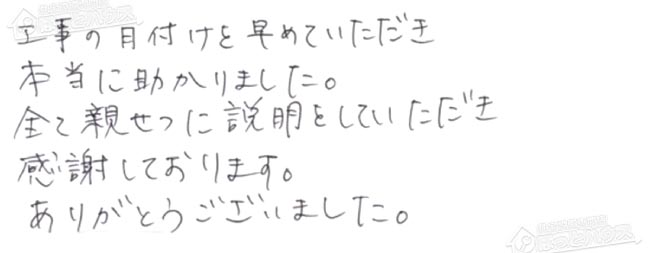 工事の日付けを早めていただき
本当に助かりました。
全て親せつに説明をしていただき
感謝しております。
ありがとうございましました。